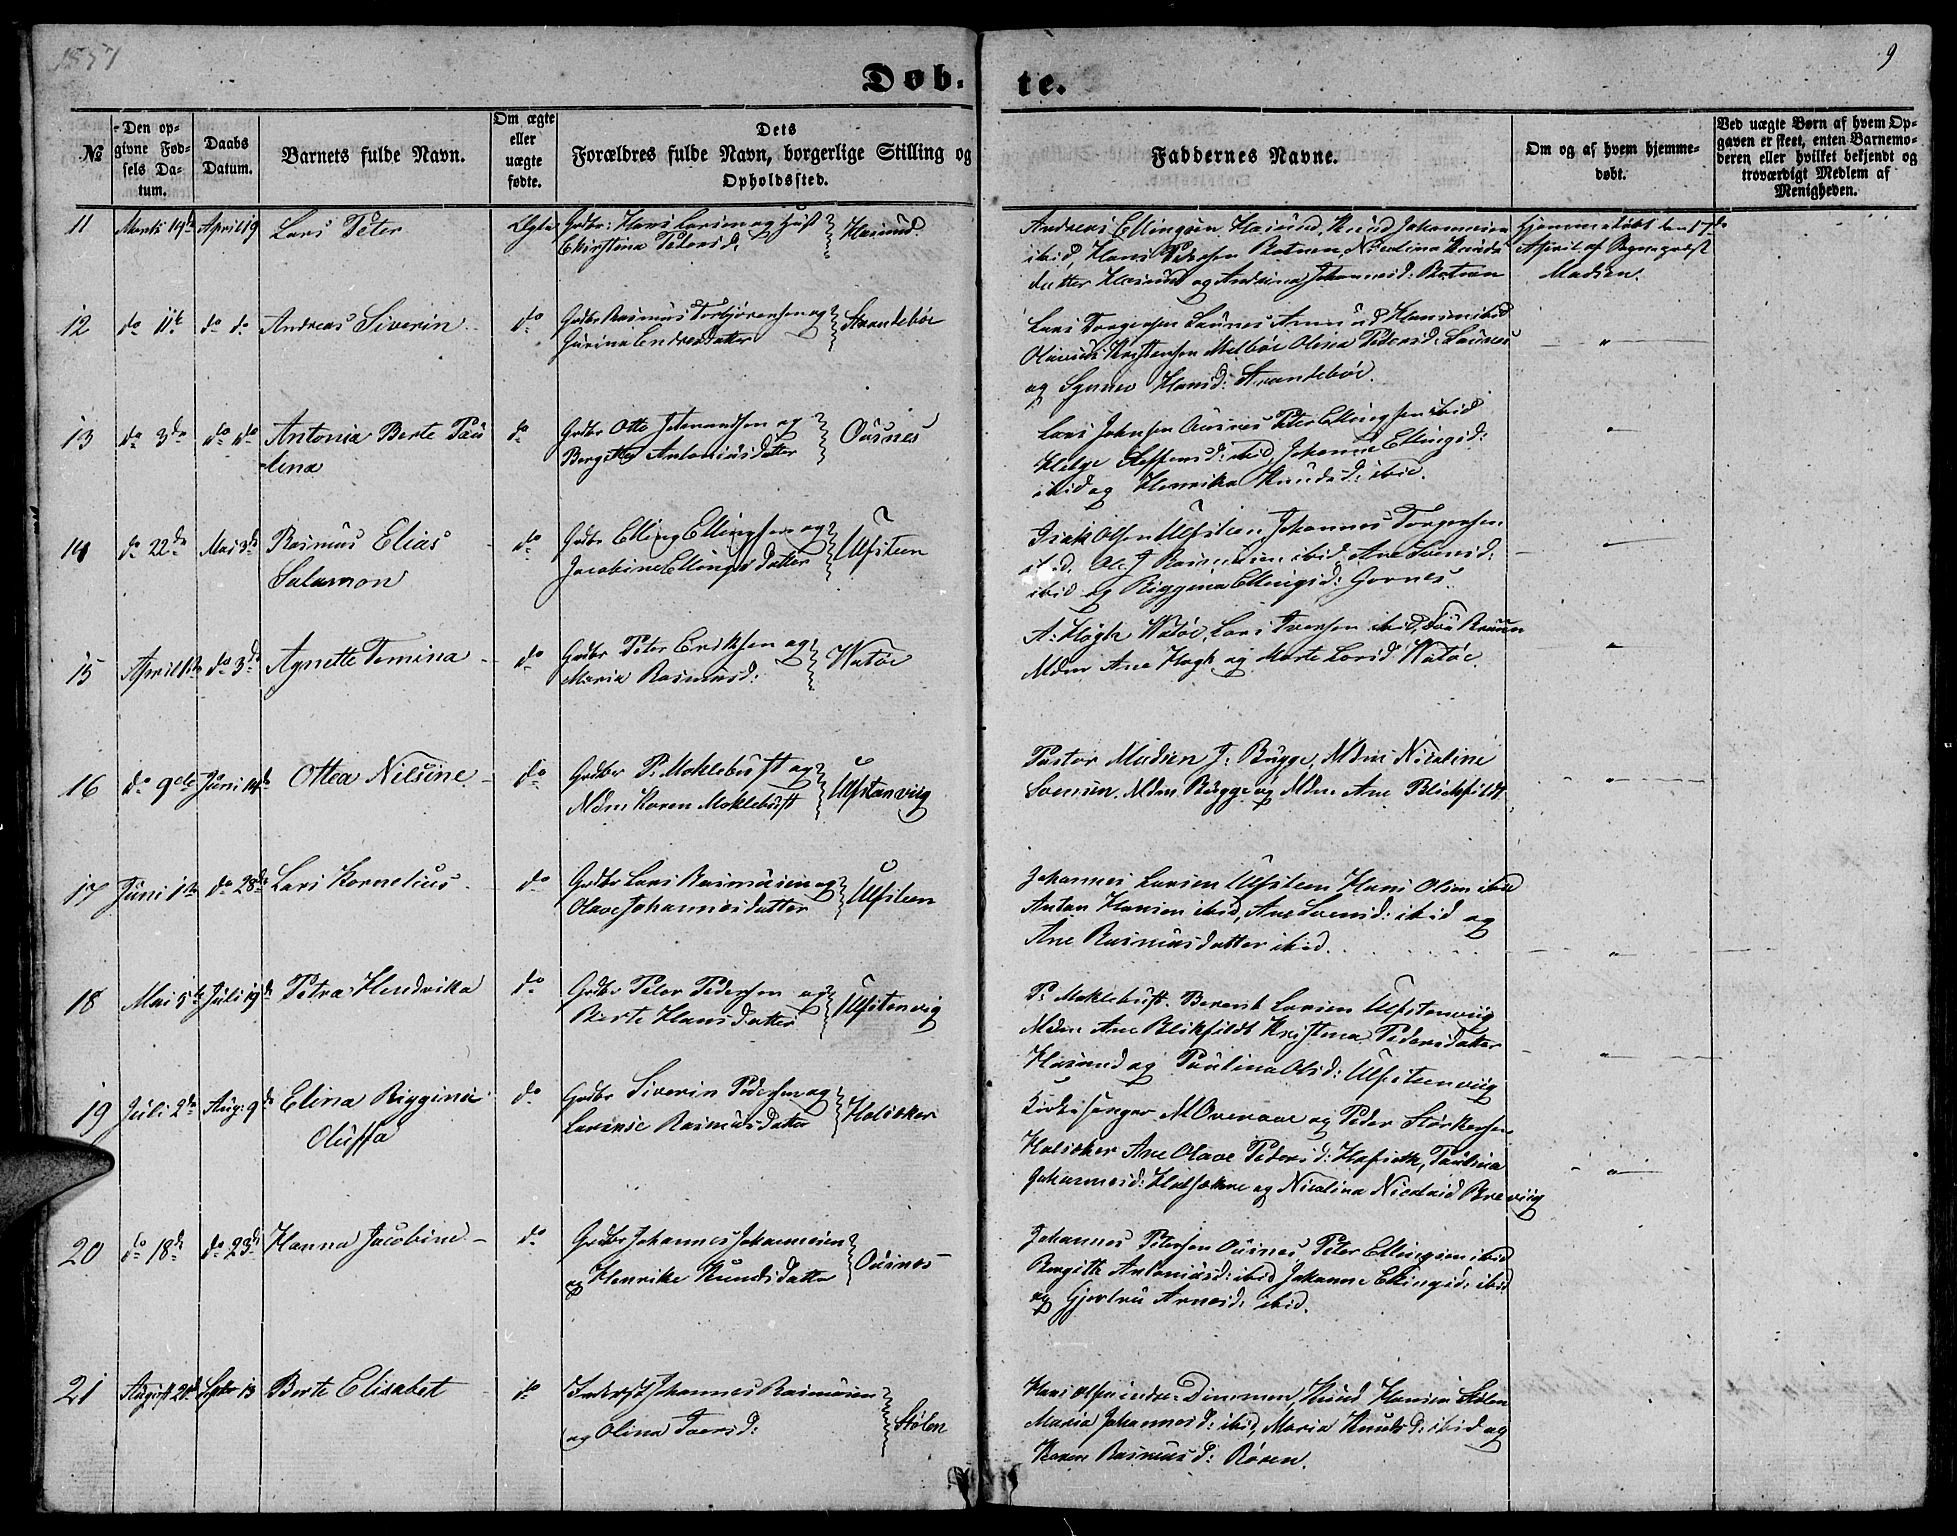 1857
9
Døb- te.
№
Den op-
givne Fød-
sels Da-
tum.
Daabs
Datum.
Barnets fulde Navn.
Om ægte
eller
uægte
fødte.
Dets
Forældres fulde Navn, borgerlige Stilling og
Opholdssted.
Faddernes Navne.
Om og af hvem hjemme-
døbt.
Ved uægte Børn af hvem Op-
gaven er skeet, enten Barnemo-
deren eller hvilket bekjendt og
troværdigt Medlem af
Menigheden.
11 Marts 19de April 19 Lars Peter Ægte Grdbr: Hans Larsen og Hust
Christina Pedersd: Hasund.
Andreas Ellingsen Hasund, Knud Johannesen
ibid, Hans Petersen Botnen, Nicolina Knuds
datter Hasund og Andrina Johannesd: Botnen
Hjemmedøbt den 17de
April af Sognepræst
Madsen.
12 do 11te do do Andreas Siverin do Grdbr Rasmus Torbjørensen og
Gurina Endresdatter Strandebøe
Lars Torgersen Saunes Amund Hansen ibid
Olavius Kristensen Melbøe Olina Pedersd: Saunes
og Synneve Hansd: Strandebøe.
13 do 3de do do Antonia Berte Pau
lina do Grdbr Otte Jetmundsen og
Bergitte Antoniusdatter Ousnes
Lars Johnsen Ousnes Peter Ellingsen ibid
Helge Steffensd: ibid, Johanne Ellingsd:
ibid og Henrika Knudsd: ibid.
14 do 22de Mai 3de Rasmus Elias
Salamon do Grdbr Elling Ellingsen og
Jacobine Ellingsdatter Ulfsteen
Isak Olsen Ulfsteen Johannes Torgersen
ibid. Ole J Rasmusen ibid Ane Svensd:
ibid og Birggina Ellingsd: Gornes.
15 April 1ste do 3de Agnette Temina do Grdbr Peter Eriksen og
Maria Rasmusd: Vatøe
A. Høgh Vatøe, Lars Iversen ibid, Fru Bruun
Mdm Ane Høgh og Marte Larsd Vatøe.
16 do 9de Juni 14de Ottea Nilsine do Grdbr P. Moklebust og
Mdm Karen Moklebust Ulfstenvig
Pastor Madsen J. Bugge, Mdm Nicoline
Svensen. Mdm Bugge og Mdm Ane Blickfildt
17 Juni 1ste do 28de Lars Kornelius do Grdbr Lars Rasmusen og
Olave Johannesdatter Ulfsteen
Johannes Larsen Ulfsteen Hans Olsen ibid
Anton Hansen ibid, Ane Svensd: ibid og
Ane Rasmusdatter ibid.
18 Mai 5te Juli 19de Petra Hendrika do Grdbr Peter Pedersen og
Berte Hansdatter Ulfstenvig
P. Moklebust. Berent Larsen Ulfstenvig
Mdm Ane Blikfildt Kristina Pedersdatter
Hasund og Paulina Olsd: Ulfsteenviig
19 Juli 2de Aug: 9de Elina Birggina
Oluffa do Grdbr Siverin Pedersen og
Lavinse Rasmusdatter Haloker
Kirkesanger M Overaae og Peder Størkersen
Haloker Ane Olave Pedersd: Hofseth, Paulina
Johannesd: Hatløkne og Nicolina Nicolaid Breviig
20 do 18de do 23de Hanna Jacobine do Grdbr Johannes Johannesen
og Henrike Knudsdatter Ousnes
Johannes Petersen Ousnes Peter Ellingsen ibid
Bergitte Antoniusd: ibid Johanne Ellingsd: ibid
og Gjertru Arnesd: ibid.
21 August 21de Septbr 13 Berte Elisabet do Inderst Johannes Rasmusen
og Olina Toersd: Stølen
Dimmen, Knud Hansen Stølen
Maria Johannesd: ibid, Maria Knudsd: ibid og
Karen Rasmusd: Røren.